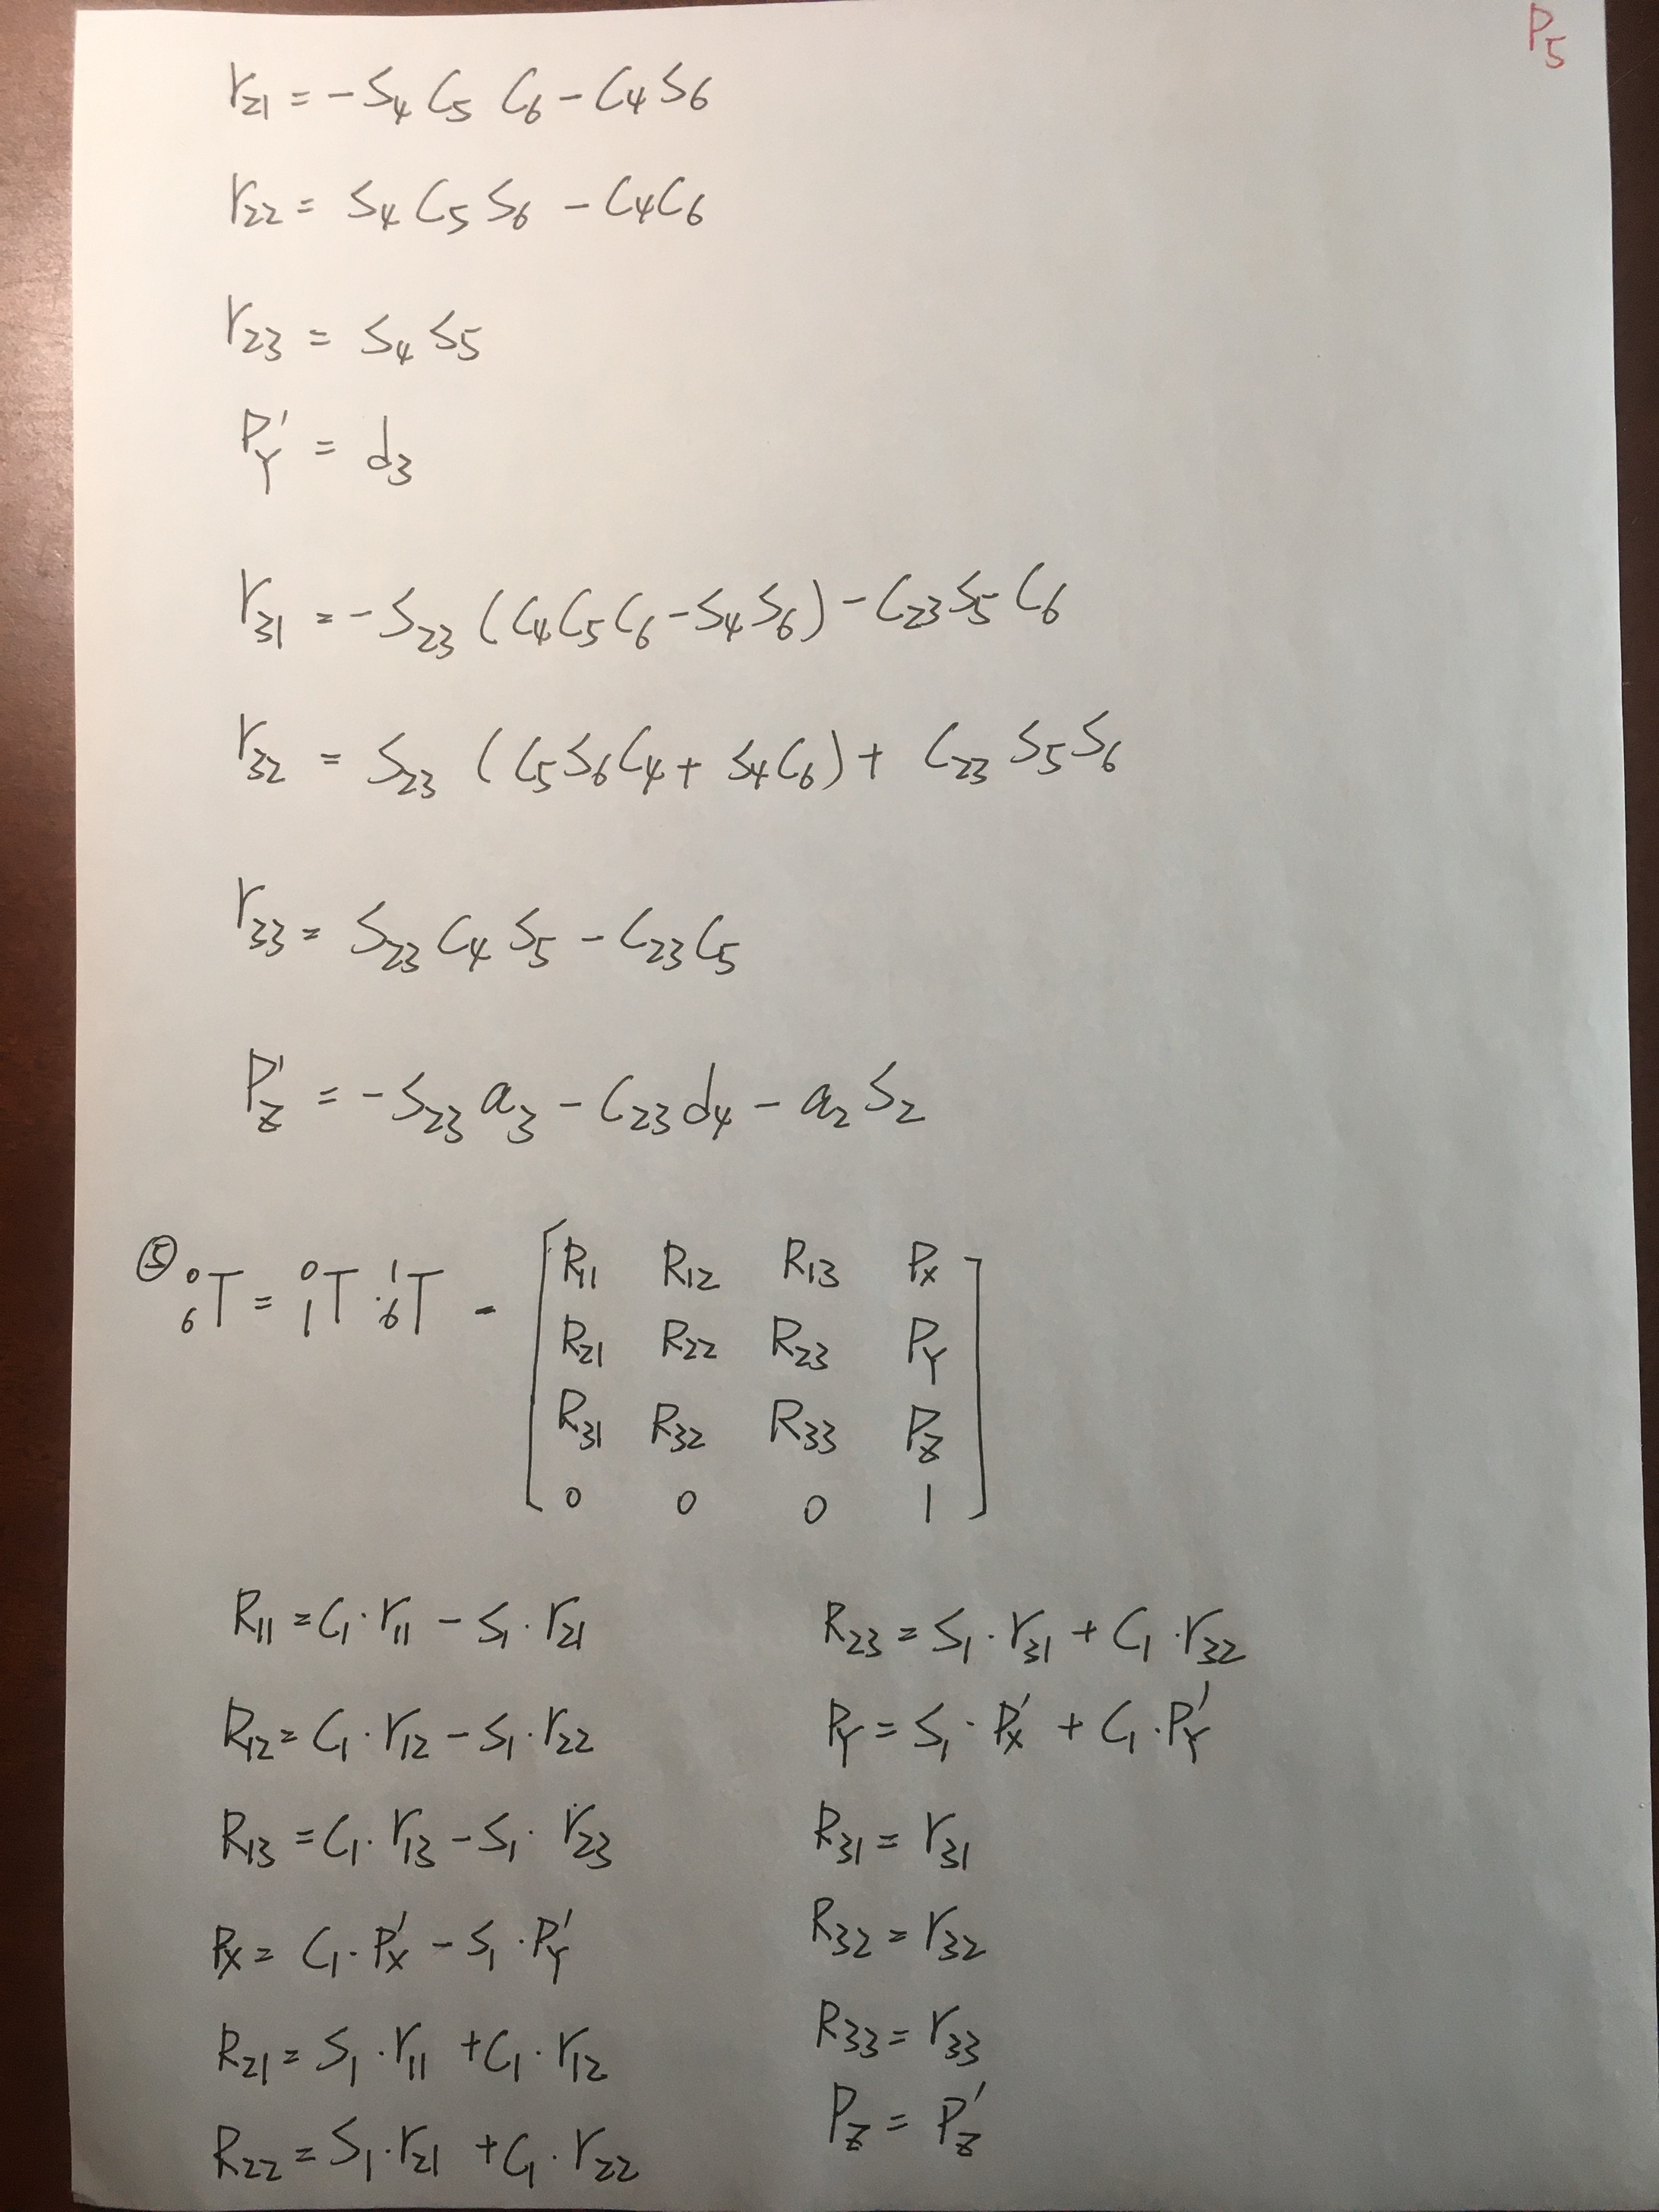 P5
r21 = -S4 C5 C6 - C4 S6
r22 = S4 C5 S6 - C4C6
r23 = S4 S5
P'Y = d3
r31 = -S23 (C4C5C6 - S4S6) - C23 S5 C6
r32 = S23 (C5S6C4 + S4C6) + C23 S5S6
r33 = S23 C4 S5 - C23 C5
P'z = -S23 a3 - C23 d4 - a2 S2
⑤ 0 6T = 0 1T · 1 6T =
R11 R12 R13 Px
R21 R22 R23 PY
R31 R32 R33 Pz
0 0 0 1
R11 = C1 · r11 - S1 · r21
R12 = C1 · r12 - S1 · r22
R13 = C1 · r13 - S1 · r23
Px = C1 · P'x - S1 · P'Y
R21 = S1 · r11 + C1 · r12
R22 = S1 · r21 + C1 · r22
R23 = S1 · r31 + C1 · r32
PY = S1 · P'x + C1 · P'Y
R31 = r31
R32 = r32
R33 = r33
Pz = P'z